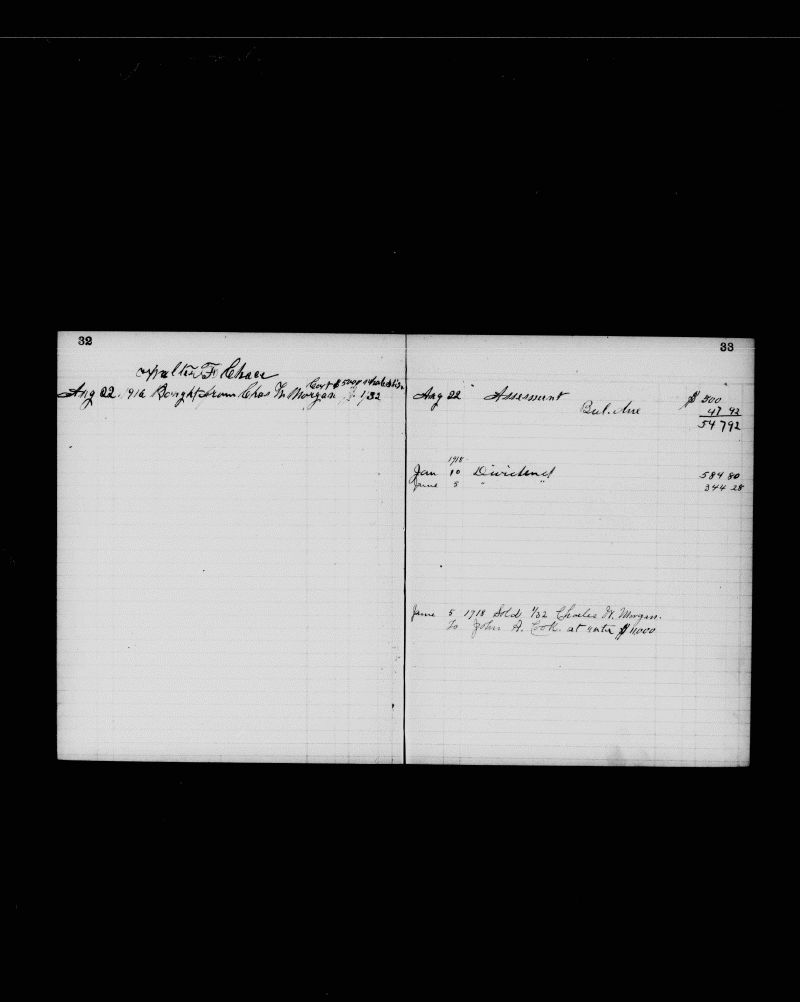 32
Walter F. Chace
Aug 22 1916 Bought from Chas W Morgan 1/32
33
Aug 22 Assessment $ 500
Bal. due 47 92
547 92
1918
Jan 10 Dividend 584 80
June 5 " " 344 28
June 5 1918 Sold 1/32 Charles W. Morgan.
to John A. Cook. at rate $11000